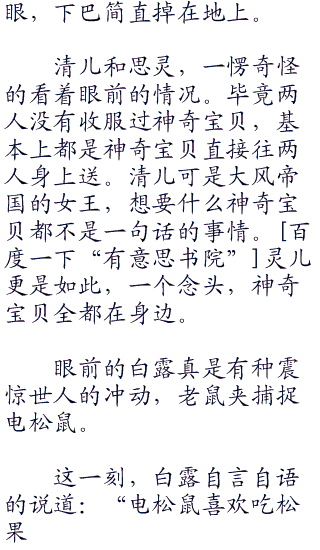 眼，下巴简直掉在地上。
清儿和思灵，一愣奇怪
的看着眼前的情况。毕竟两
人没有收服过神奇宝贝，基
本上都是神奇宝贝直接往两
人身上送。清儿可是大风帝
国的女王，想要什么神奇宝
贝都不是一句话的事情。[百
度一下“有意思书院”]灵儿
更是如此，一个念头，神奇
宝贝全都在身边。
眼前的白露真是有种震
惊世人的冲动，老鼠夹捕捉
电松鼠。
这一刻，白露自言自语
的说道：“电松鼠喜欢吃松
果